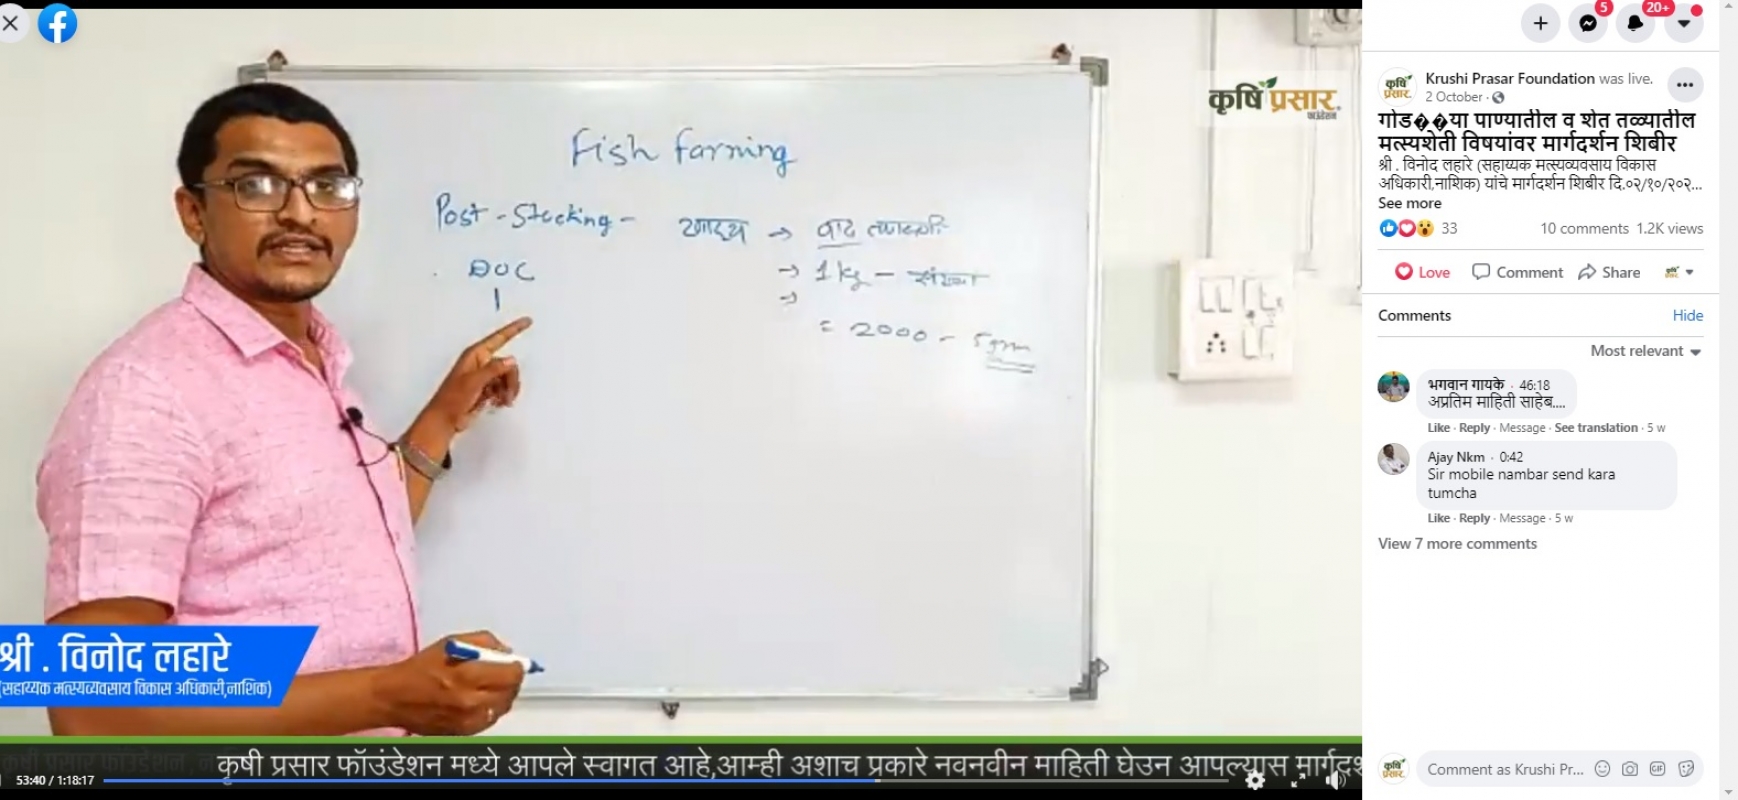 कृषि प्रसार
फाउंडेशन
Fish farming
Post-Stocking - खाद्य → वाढ तपासणी
DOC → 1 kg - संख्या
1 →
= 2000 - 5 gm
श्री . विनोद लहारे
(सहाय्यक मत्स्यव्यवसाय विकास अधिकारी,नाशिक)
कृषी प्रसार फॉउंडेशन मध्ये आपले स्वागत आहे,आम्ही अशाच प्रकारे नवनवीन माहिती घेउन आपल्यास मार्गदर्श
53:40 / 1:18:17
5
20+
Krushi Prasar Foundation was live.
2 October
गोड��या पाण्यातील व शेत तळ्यातील
मत्स्यशेती विषयांवर मार्गदर्शन शिबीर
श्री . विनोद लहारे (सहाय्यक मत्स्यव्यवसाय विकास
अधिकारी,नाशिक) यांचे मार्गदर्शन शिबीर दि.०२/१०/२०२...
See more
33 10 comments 1.2K views
Love Comment Share
Comments Hide
Most relevant
भगवान गायके · 46:18
अप्रतिम माहिती साहेब....
Like · Reply · Message · See translation · 5 w
Ajay Nkm · 0:42
Sir mobile nambar send kara
tumcha
Like · Reply · Message · 5 w
View 7 more comments
Comment as Krushi Pr...
GIF